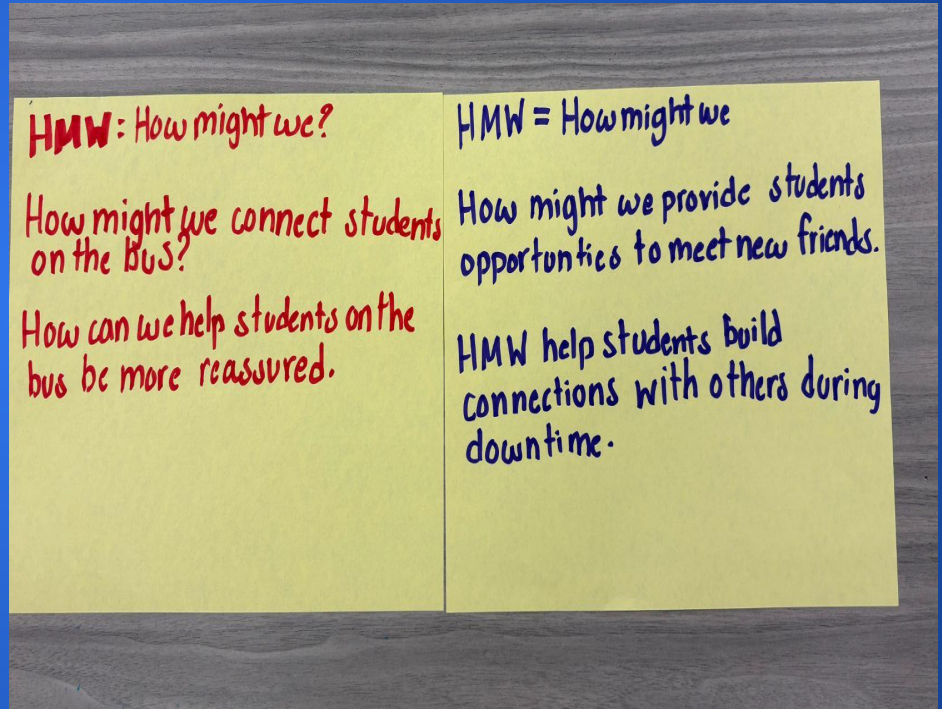 HMW: How might we?
How might we connect students
on the Bus?
How can we help students on the
bus be more reassured.
HMW = How might we
How might we provide students
opportunties to meet new friends.
HMW help students build
connections with others during
downtime.